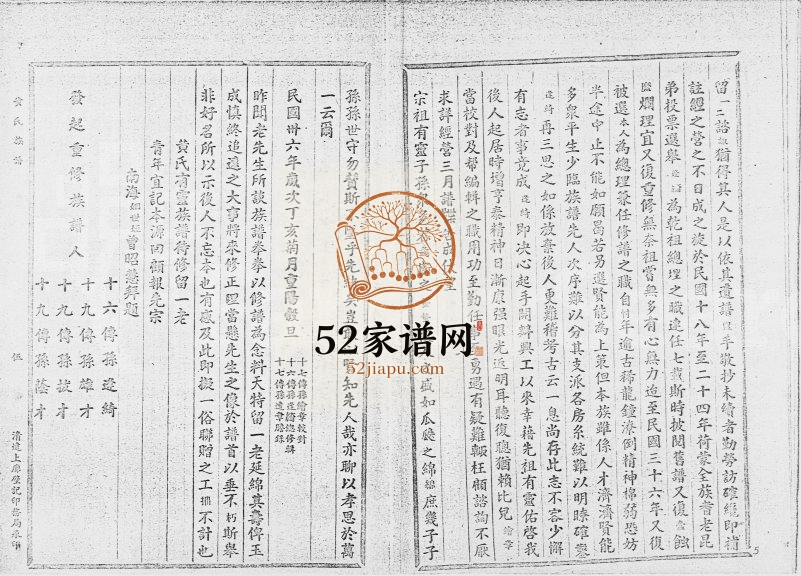 留一二諮諏猶得其人是以依其遺譜豆手散抄未續者勤勞訪確繼即補
註經之營之不日成之旋於民國十八年至二十四年荷蒙全族耆老昆
弟投票選舉逵綺為乾祖總理之職連任七載斯時披閱舊譜又復蠹蝕
爛理宜又復重修無奈祖嘗無多有心無力迨至民國三十六年又復
被選本人為總理兼任修譜之職自忖年逾古稀龍鐘潦倒精神棉弱恐妨
半途中止不能如願曷若另選賢能為上策但本族雖係人才濟濟賢能
多衆平生少臨族譜先人次序難以分其支派各房系統難以明瞭確案
逵綺再三思之如係放棄後人更難稽考古云一息尚存此志不容少懈
有志者事竟成逵綺即决心起手開辦興工以來幸藉先祖有靈佑啓我
後人起居時增亨泰精神日漸康强眼光返明耳聽復聰猶賴比兒繪章
當校對及幫編輯之職用功至勤任勇遇有疑難輙枉顧諮詢不厭
求詳經營三月譜
宗祖有靈子孫盛如瓜瓞之綿綿庶幾子子
孫孫世守勿贊斯乎先賢知先人哉亦聊以孝思於萬
一云爾
十七傳孫繪章校對
十六傳孫逵綺總修輯
十七傳孫逵章謄錄
民國卅六年歲次丁亥菊月重陽穀旦
昨聞老先生所談族譜拳拳以修譜為念料天特留一老延綿其壽俾玉
成慎終追遠之大事將來修正理當懸先生之像於譜首以垂不朽斯舉
非好名所以示後人不忘本也有感及此即擬一俗聯贈之工拙不計也
黃氏有靈族譜待修留一老
青年宜記本源回顧報先宗
南海姻世姪曾昭懸拜題
發起重修族譜人
十六傳孫逵綺
十九傳孫雄才
十九傳孫拔才
十九傳孫蔭才
黃氏族譜
伍
清遠上廊登記印務局承印
5
52家谱网
52jiapu.com